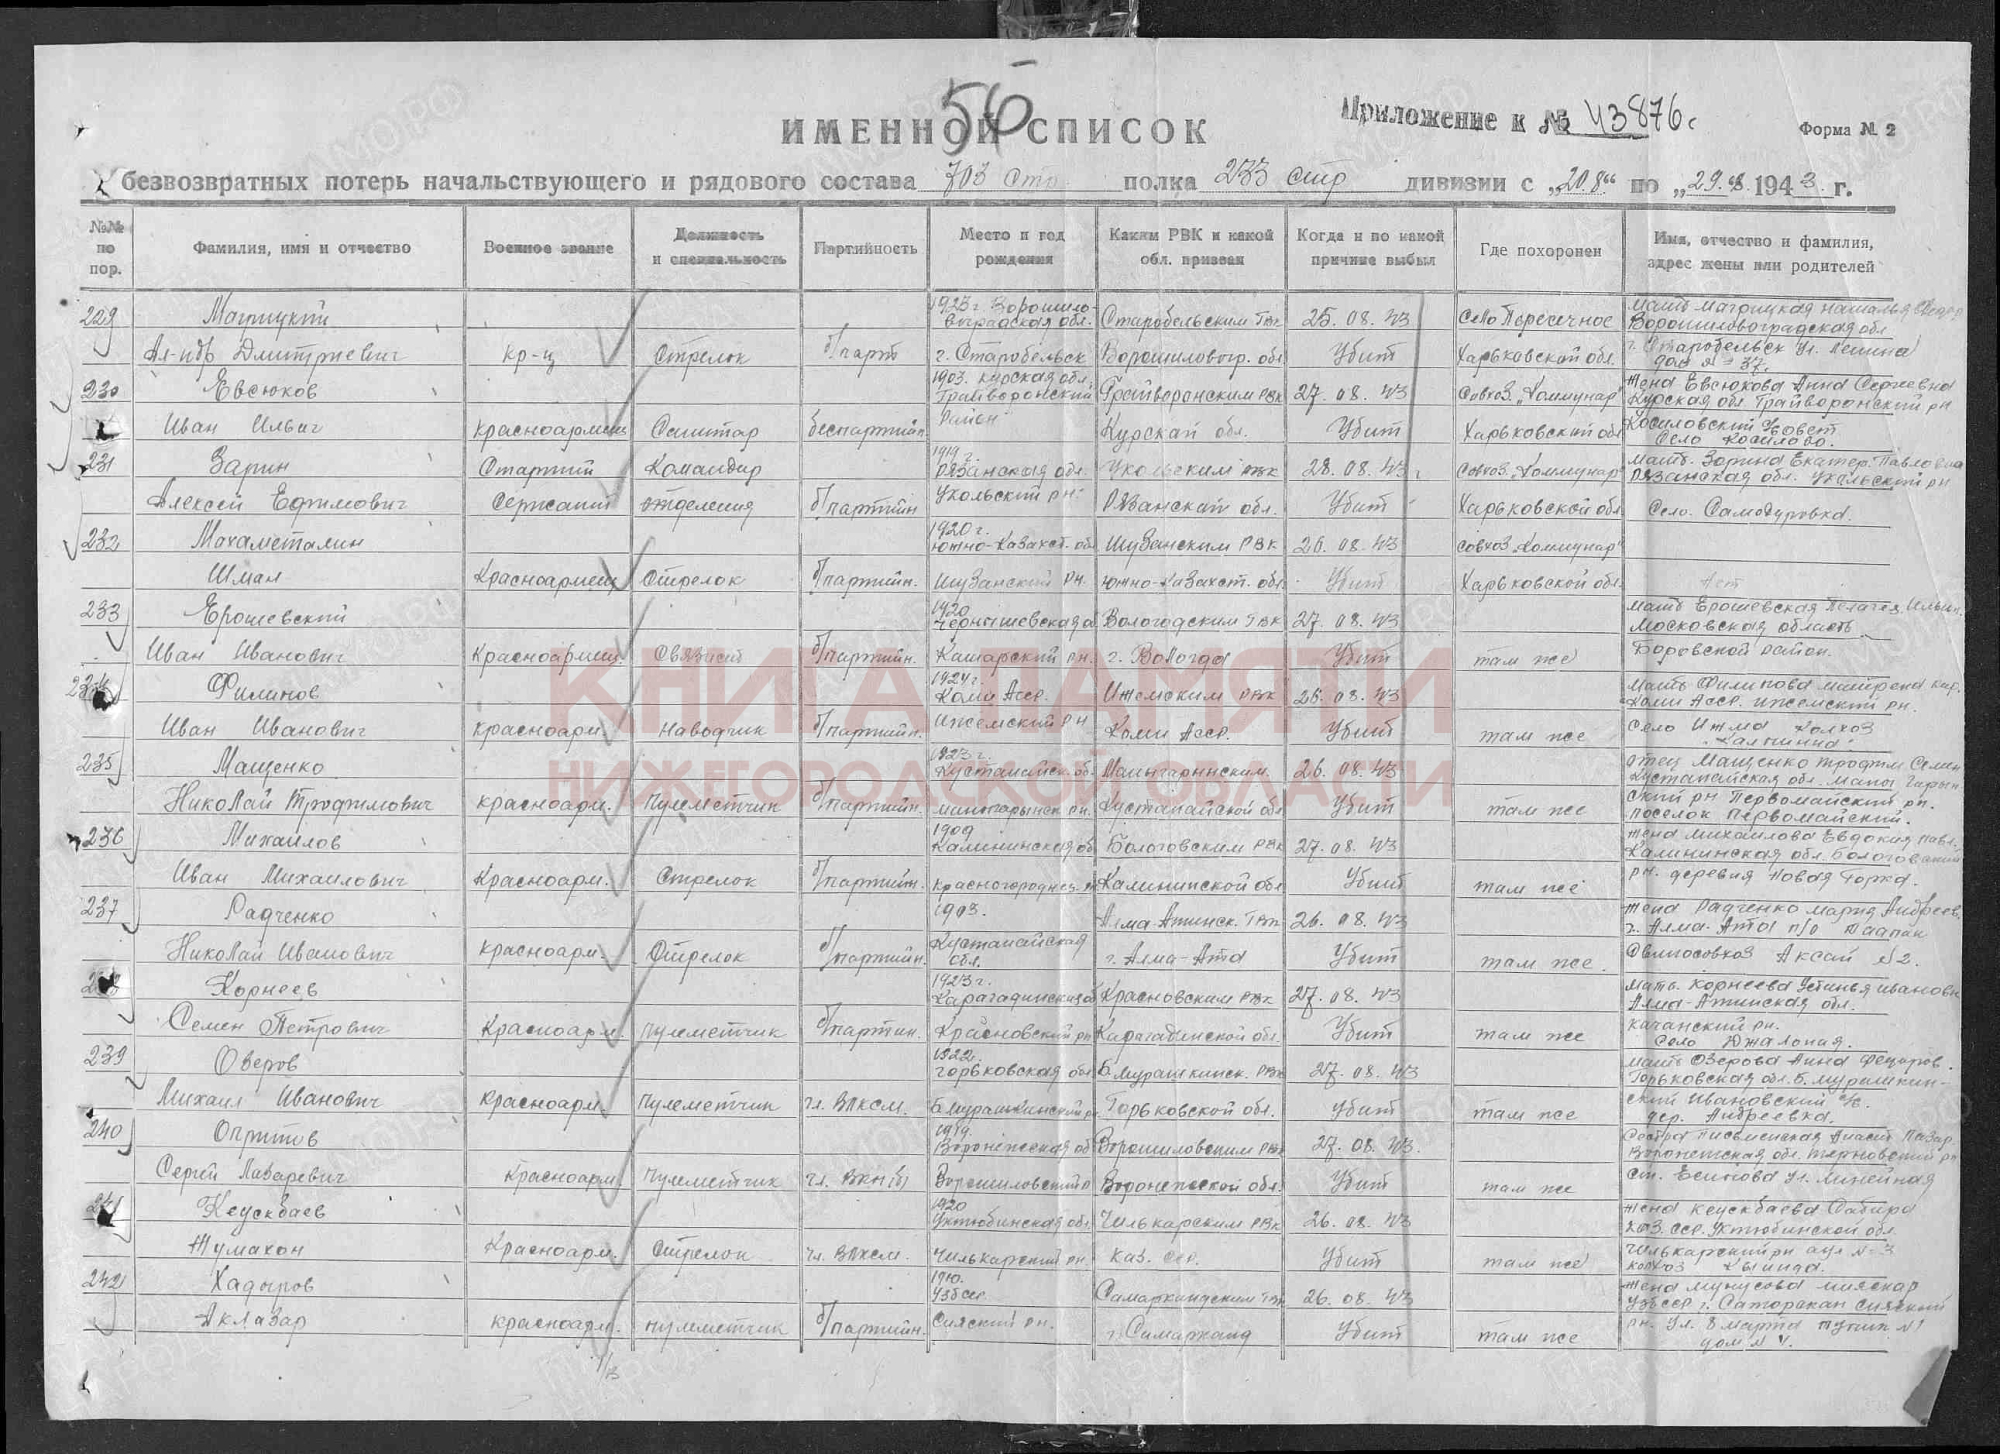 56
ИМЕННОЙ СПИСОК
Приложение к № 43876с
Форма № 2
безвозвратных потерь начальствующего и рядового состава 703 стр полка 233 стр дивизии с „20.8“ по „29.8 1943 г.
№№ по пор. Фамилия, имя и отчество Военное звание Должность и специальность Партийность Место и год рождения Каким РВК и какой обл. призван Когда и по какой причине выбыл Где похоронен Имя, отчество и фамилия, адрес жены или родителей
229 Магрицкий 1923 г. Ворошиловградская обл. Старобельским РВК 25.08.43 Село Пересечное Мать Магрицкая Наталья Ворошиловградская обл
Ал-ндр Дмитриевич кр-ц Стрелок б/парт г. Старобельск Ворошиловгр. обл Убит Харьковской обл. г. Старобельск ул. Ленина дом № 37.
230 Евсюков 1903. Курская обл. Грайворонский район Грайворонским РВК 27.08.43 Совхоз „Коммунар“ Жена Евсюкова Анна Сергеевна Курская обл Грайворонский рн
Иван Ильич красноармеец Санитар беспартийн. Курской обл. Убит Харьковской обл Косиловский с/совет Село Косилово.
231 Зарин Старший Командир 1919 г. Рязанская обл. Укольским РВК 28.08.43 г совхоз „Коммунар“ Мать Зарина Екатер. Павловна Рязанская обл. Укольский рн
Алексей Ефимович Сержант отделения б/партийн Укольский рн. Рязанской обл. Убит Харьковской обл Село Самодуровка.
232 Махаметалин 1920 г. Южно-Казахст. обл Шузанским РВК 26.08.43 совхоз „Коммунар“
Шман Красноармеец Стрелок б/партийн. Шузанский рн. Южно-Казахст. обл. Убит Харьковской обл. Нет
233 Ерошевский 1920 Чернышевская о Вологодским РВК 27.08.43 Мать Ерошевская Пелагея Ильин. Московская область
Иван Иванович Красноармеец Связист б/партийн. Кашарский рн. г. Вологда Убит там же Боровской район.
234 Филипов 1924 г. Коми Асср. Ижемским РВК 26.08.43 Мать Филипова Коми Асср. Ижемский рн.
Иван Иванович красноарм. Наводчик б/партийн. Ижемский рн Коми Асср. Убит там же Село Ижма Колхоз Калинина.
235 Мащенко 1923 г. Кустанайск. об. 26.08.43 отец Мащенко Трофим Семен Кустанайская обл.
Николай Трофимович красноарм. Пулеметчик б/партийн. Кустанайской обл Убит там же ский рн Первомайский рн. поселок Первомайский.
236 Михайлов 1909 Калининская об Бологовским РВК 27.08.43 Жена Михайлова Евдокия Павл. Калининская обл. Бологовский
Иван Михайлович Красноарм. Стрелок б/партийн. Калининской обл Убит там же рн. деревня Новая Горка.
237 Радченко 1903. Алма-Атинск. РВК 26.08.43 Жена Радченко Мария Андреев. г. Алма-Ата п/о
Николай Иванович Красноарм. Стрелок б/партийн. Кустанайская обл. г. Алма-Ата Убит там же. Свиносовхоз Аксай №2.
238 Корнеев 1923 г. Карагадинская об Красновским РВК 27.08.43 мать Корнеева Устинья Ивановн Алма-Атинская обл.
Семен Петрович Красноарм. пулеметчик б/партийн. Красновский рн Карагадинской обл. Убит там же Качанский рн. Село
239 Озеров 1922 г. Горьковская обл Б. Мурашкинск. РВК 27.08.43 мать Озерова Анна Федоров. Горьковская обл. Б. Мурашкин-
Михаил Иванович Красноарм. Пулеметчик чл. ВЛКСМ. Б. Мурашкинский рн Горьковской обл. Убит там же ский Ивановский с/с. дер. Андреевка.
240 Опритов 1919. Воронежская об Ворошиловским РВК 27.08.43. Сестра Письменская Анаст Лазар. Воронежская обл. Терновский рн
Сергей Лазаревич Красноарм. Пулеметчик чл. ВКП(б) Ворошиловский р Воронежской обл. Убит там же ст. Есипова ул. Линейная
241 Кеускбаев 1920 Уктюбинская обл. Чилькарским РВК 26.08.43 Жена Кеускбаева Сабира Каз. сср. Уктюбинской обл.
Жумахон Красноарм. Стрелок чл. ВЛКСМ. Чилькарский рн. Каз. сср. Убит там же Чилькарский рн аул №3 колхоз
242 Хадыров 1910. Узбсср. Самаркандским РВК 26.08.43 Жена Мунусова Узбсср г.
Аклазар красноарм. пулеметчик б/партийн. Сияский рн. г. Самарканд Убит там же рн. ул. 8 марта тупик №1 дом №
КНИГА ПАМЯТИ
НИЖЕГОРОДСКОЙ ОБЛАСТИ